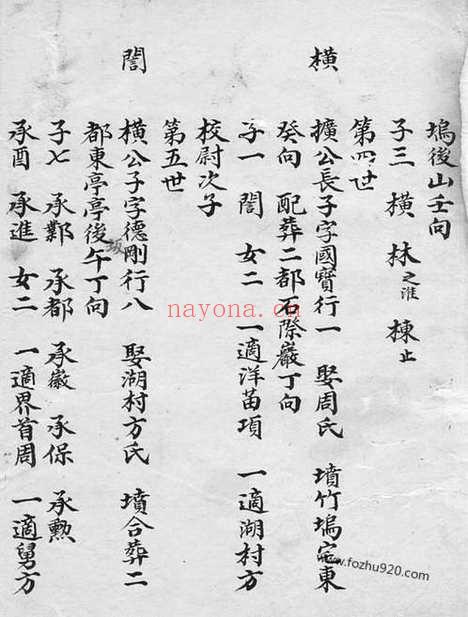 塢後山壬向
子三 橫 林之淮 棟止
第四世
橫
擴公長子字國寶行一 娶周氏 墳竹塢宅東
癸向 配葬二都石際巖丁向
子一 誾 女二 一適洋苗項 一適湖村方
校尉次子
第五世
誾
橫公子字德剛行八 娶湖村方氏 墳合葬二
都東亭亭後坂午丁向
子七 承鄴 承都 承徽 承保 承勲
承酉 承進 女二 一適界首周 一適舅方
nayona.cn
www.fozhu920.com